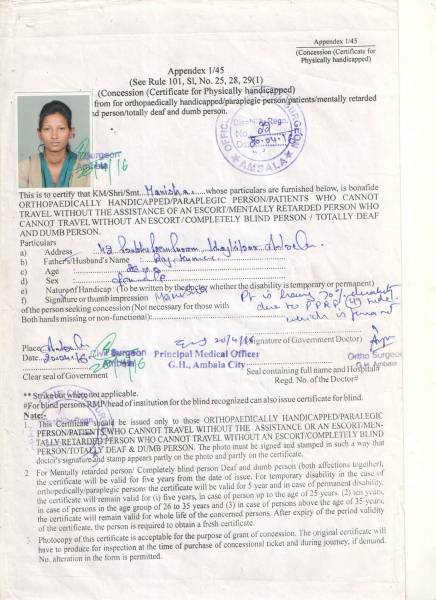 Appendex 1/45
(Concession (Certificate for
Physically handicapped)
Appendex 1/45
(See Rule 101, Sl, No. 25, 28, 29(1)
(Concession (Certificate for Physically handicapped)
from for orthopaedically handicapped/paraplegic person/patients/mentally retarded
nd person/totally deaf and dumb person.
AMBALA
This is to certify that KM/Shri/Smt. Manisha whose particulars are furnished below, is bonafide
ORTHOPAEDICALLY HANDICAPPED/PARAPLEGIC PERSON/PATIENTS WHO CANNOT
TRAVEL WITHOUT THE ASSISTANCE OF AN ESCORT/MENTALLY RETARDED PERSON WHO
CANNOT TRAVEL WITHOUT AN ESCORT/COMPLETELY BLIND PERSON / TOTALLY DEAF
AND DUMB PERSON.
Particulars
a) Address
b) Father's/Husband's Name Raj Kumar
c) Age
d) Sex Female
e) Nature of Handicap (To be written by the doctor whether the disability is temporary or permanent)
f) Signature or thumb impression Manisha
of person seeking concession (Not necessary for those with
Both hands missing or non-functional):
Pt is having 70% disability
due to PPRP
which is permanent
Place Ambala
(Signature of Government Doctor)
Date
20/4/16
Civil Surgeon
Ambala
Principal Medical Officer
G.H., Ambala City
Ortho Surgeon
Clear seal of Government
Seal containing full name and Hospital#
Regd. No. of the Doctor#
** Strike out where not applicable.
#For blind persons RMP/head of institution for the blind recognized can also issue certificate for blind.
Note:-
1. This Certificate should be issued only to those ORTHOPAEDICALLY HANDICAPPED/PARALEGIC
PERSON/PATIENTS WHO CANNOT TRAVEL WITHOUT THE ASSISTANCE OR AN ESCORT/MEN-
TALLY RETARDED PERSON WHO CANNOT TRAVEL WITHOUT AN ESCORT/COMPLETELY BLIND
PERSON/TOTALLY DEAF & DUMB PERSON. The photo must be signed and stamped in such a way that
doctor's signature and stamp appears partly on the photo and partly on the certificate.
2 For Mentally retarded person/ Completely blind person Deaf and dumb person (both affections together),
the certificate will be valid for five years from the date of issue. For temporary disability in the case of
orthopedically/paraplegic persons the certificate will be valid for 5 year and in case of permanent disability,
the certificate will remain valid for (i) five years, in case of person up to the age of 25 years. (2) ten years,
in case of persons in the age group of 26 to 35 years and (3) in case of persons above the age of 35 years,
the certificate will remain valid for whole life of the concerned persons. After expiry of the period validity
of the certificate, the person is required to obtain a fresh certificate.
Photocopy of this certificate is acceptable for the purpose of grant of concession. The original certificate will
have to produce for inspection at the time of purchase of concessional ticket and during journey, if demand.
No. alteration in the form is permitted.